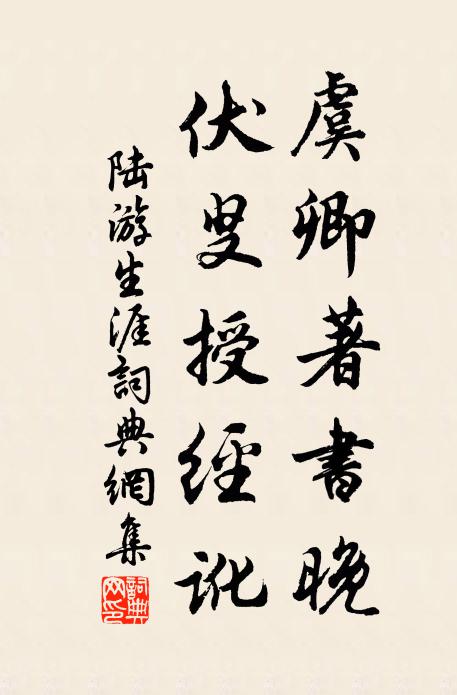 虞卿著書晚
伏叟授經訛
陸游生涯詞典網集
詞典网印